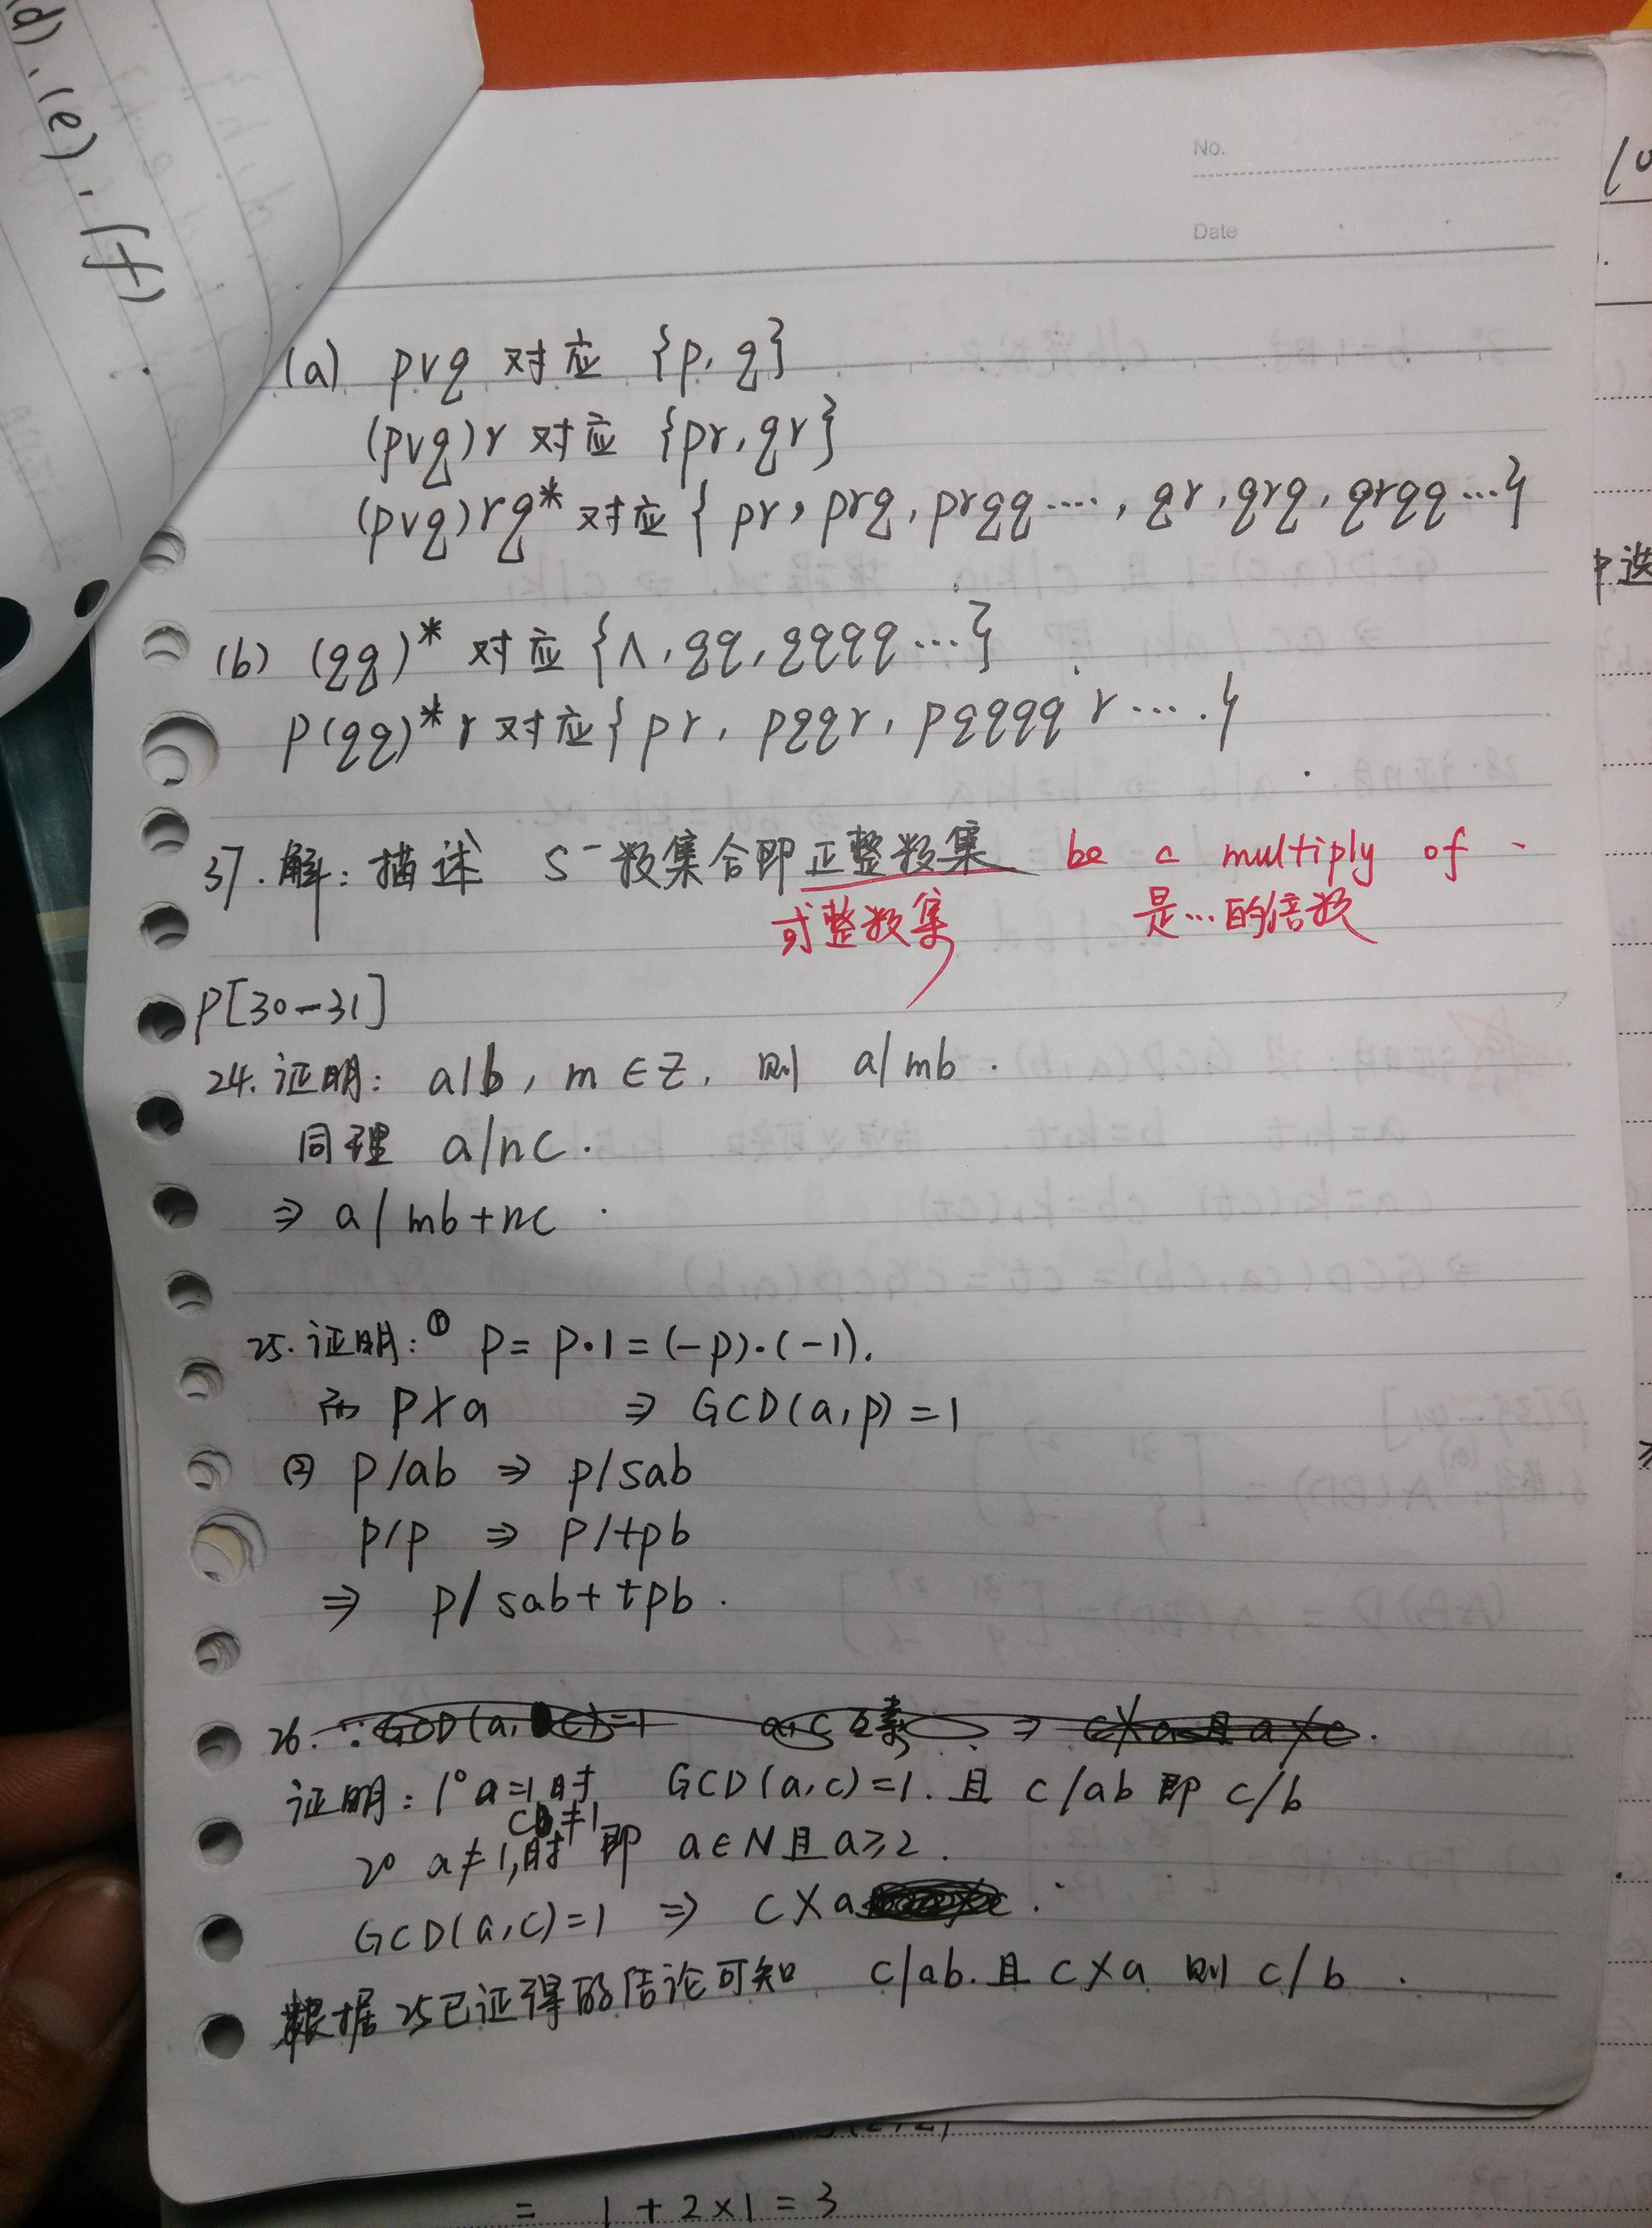 d).(e).(f)
No.
Date
(a) p∨q 对应 {p, q}
(p∨q)r 对应 {pr, qr}
(p∨q)rq* 对应 { pr, prq, prqq····, qr, qrq, qrqq…}
(b) (qq)* 对应 {Λ, qq, qqqq…}
p(qq)*r 对应 { pr, pqqr, pqqqqr ····}
37. 解: 描述 S⁻数集合即正整数集 be a multiply of
或整数集 是…的倍数
P[30-31]
24. 证明: a|b, m∈Z, 则 a/mb.
同理 a/nc.
⇒ a/mb+nc.
25. 证明: ① p = p·1 = (-p)·(-1).
而 p∤a ⇒ GCD(a,p)=1
② p/ab ⇒ p/sab
p/p ⇒ p/tpb
⇒ p/sab+tpb.
26. ∵ GCD(a, c)=1 a,c互素 ⇒ c∤a且a∤c.
证明: 1° a=1时 GCD(a,c)=1. 且 c/ab 即 c/b
2° a≠1,时 即 a∈N且a≥2.
GCD(a,c)=1 ⇒ c∤a
根据25已证得的结论可知 c/ab.且c∤a 则c/b.
= 1+2×1=3